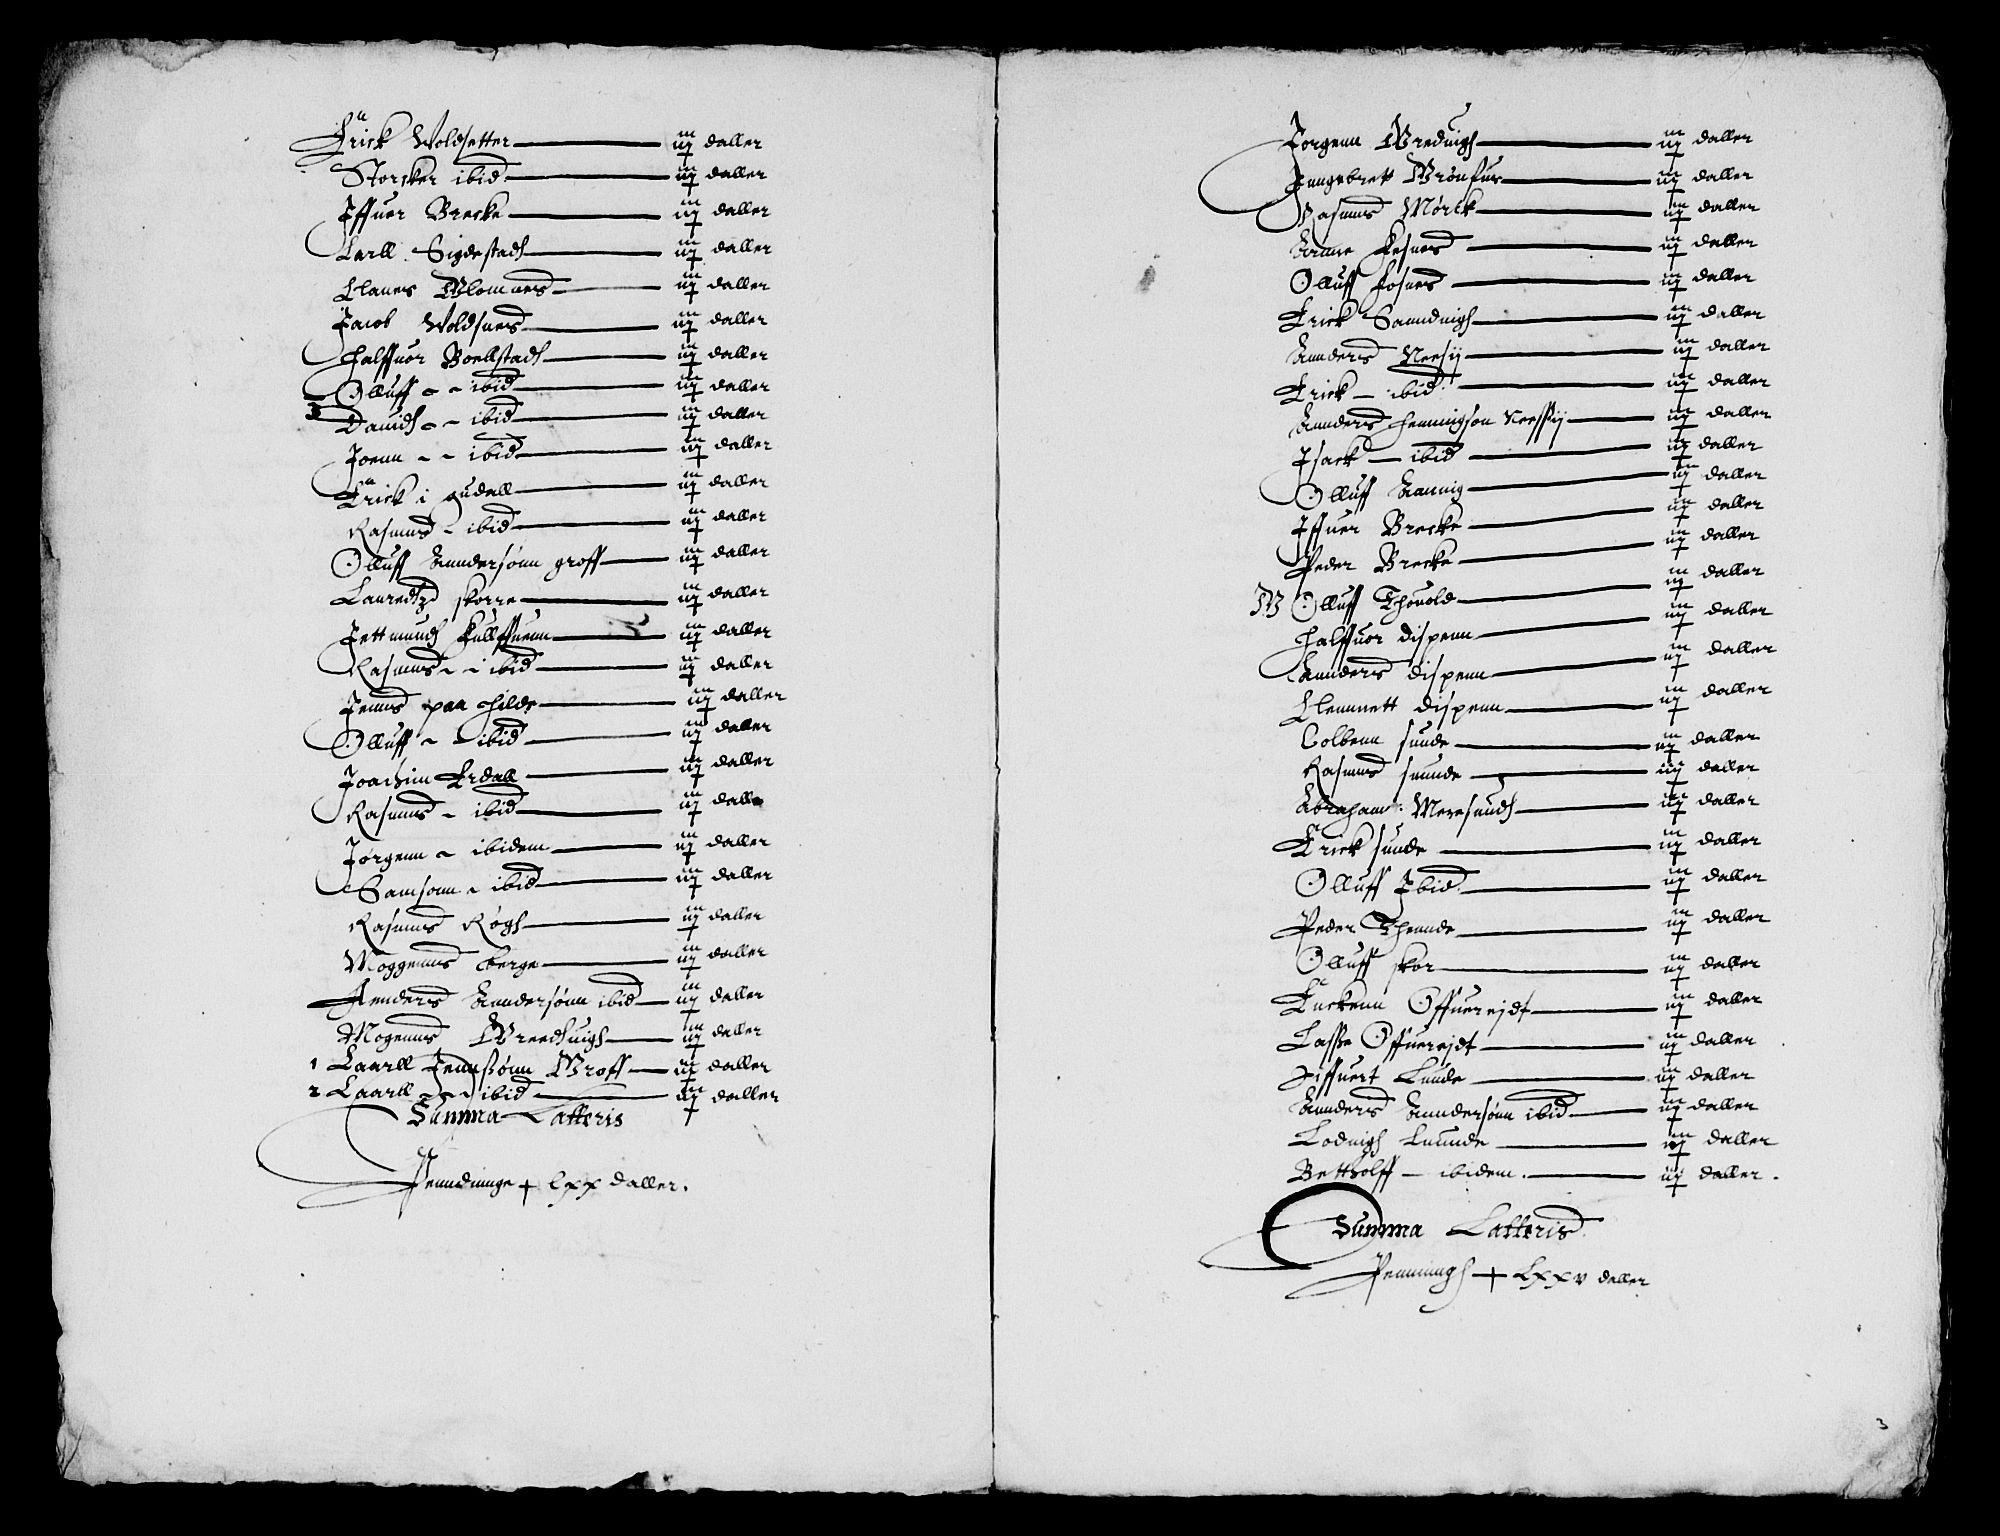 Erick Woldsetter iij daller
Storcker ibid iij daller
Iffuer Brecke iij daller
Larll Sigdestadh iij daller
Clauers Blomners iij daller
Jacob Woldsners iij daller
Halffuor Boellstadh iij daller
Olluff - - ibid iij daller
3 Dauidh - - ibid iij daller
Joenn - - ibid iij daller
Erick i gudall iij daller
Rasmus - ibid iij daller
Olluff Anndersønn groff iij daller
Lauredtzs skorre iij daller
Jettmundh Kullffuenn iij daller
Rasmus - - ibid iij daller
Jenns paa Hilde iij daller
Olluff - - ibid iij daller
Joachim Erdall iij daller
Rasmus - ibid iij daller
Jørgenn - ibidem iij daller
Samsonn - ibid iij daller
Rasmus Røgh iij daller
Moggenns berge iij daller
Annders Anndersønn ibid iij daller
Mogenns Breeduigh iij daller
1 Laarll Jennsønn Groff iij daller
2 Laarll - - ibid iij daller
Summa Latteris
Penndinnge + lxx daller.
Jørgenn Breduigh iij daller
Inngebrett Brønfur iij daller
Rasmus Mørck iij daller
Anne Fosners iij daller
Olluff Fosners iij daller
Erick Sanduigh iij daller
Annders Neesij iij daller
Erick - ibid: iij daller
Annders Henningson Neessij iij daller
Isack - ibid iij daller
Olluff Aannig iij daller
Iffuer Brecke iij daller
Peder Brecke iij daller
Olluff Thouold iij daller
Halffuor dispenn iij daller
Annders dispenn iij daller
Clemmett dispenn iij daller
Colbenn sunde iij daller
Rasmus suunde iij daller
Abraham: Meresundh iij daller
Erick sunde iij daller
Olluff Ibid: iij daller
Peder Thennde iij daller
Olluff skor iij daller
Enckenn Offuerejdt iij daller
Lasse Offuerejdt iij daller
Siffuert Lunde iij daller
Annders Anndersønn ibid iij daller
Loduigh Luunde iij daller
Bettholff - ibidem. iij daller.
Summa Latteris
Penningh + lxxv daller
3